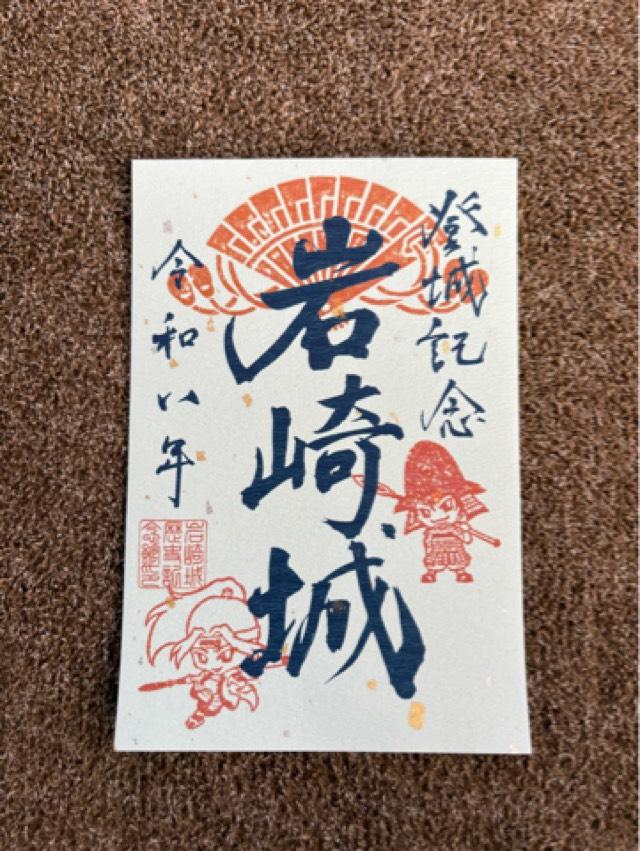 登城記念
岩崎城
令和八年
岩崎城
歴史記
念館之印